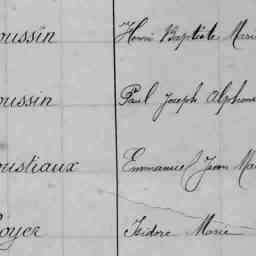 oussin Henri Baptiste Mari
oussin Paul Joseph Alphons
oustiaux Emmanuel Jean Ma
oyer Isidore Marie